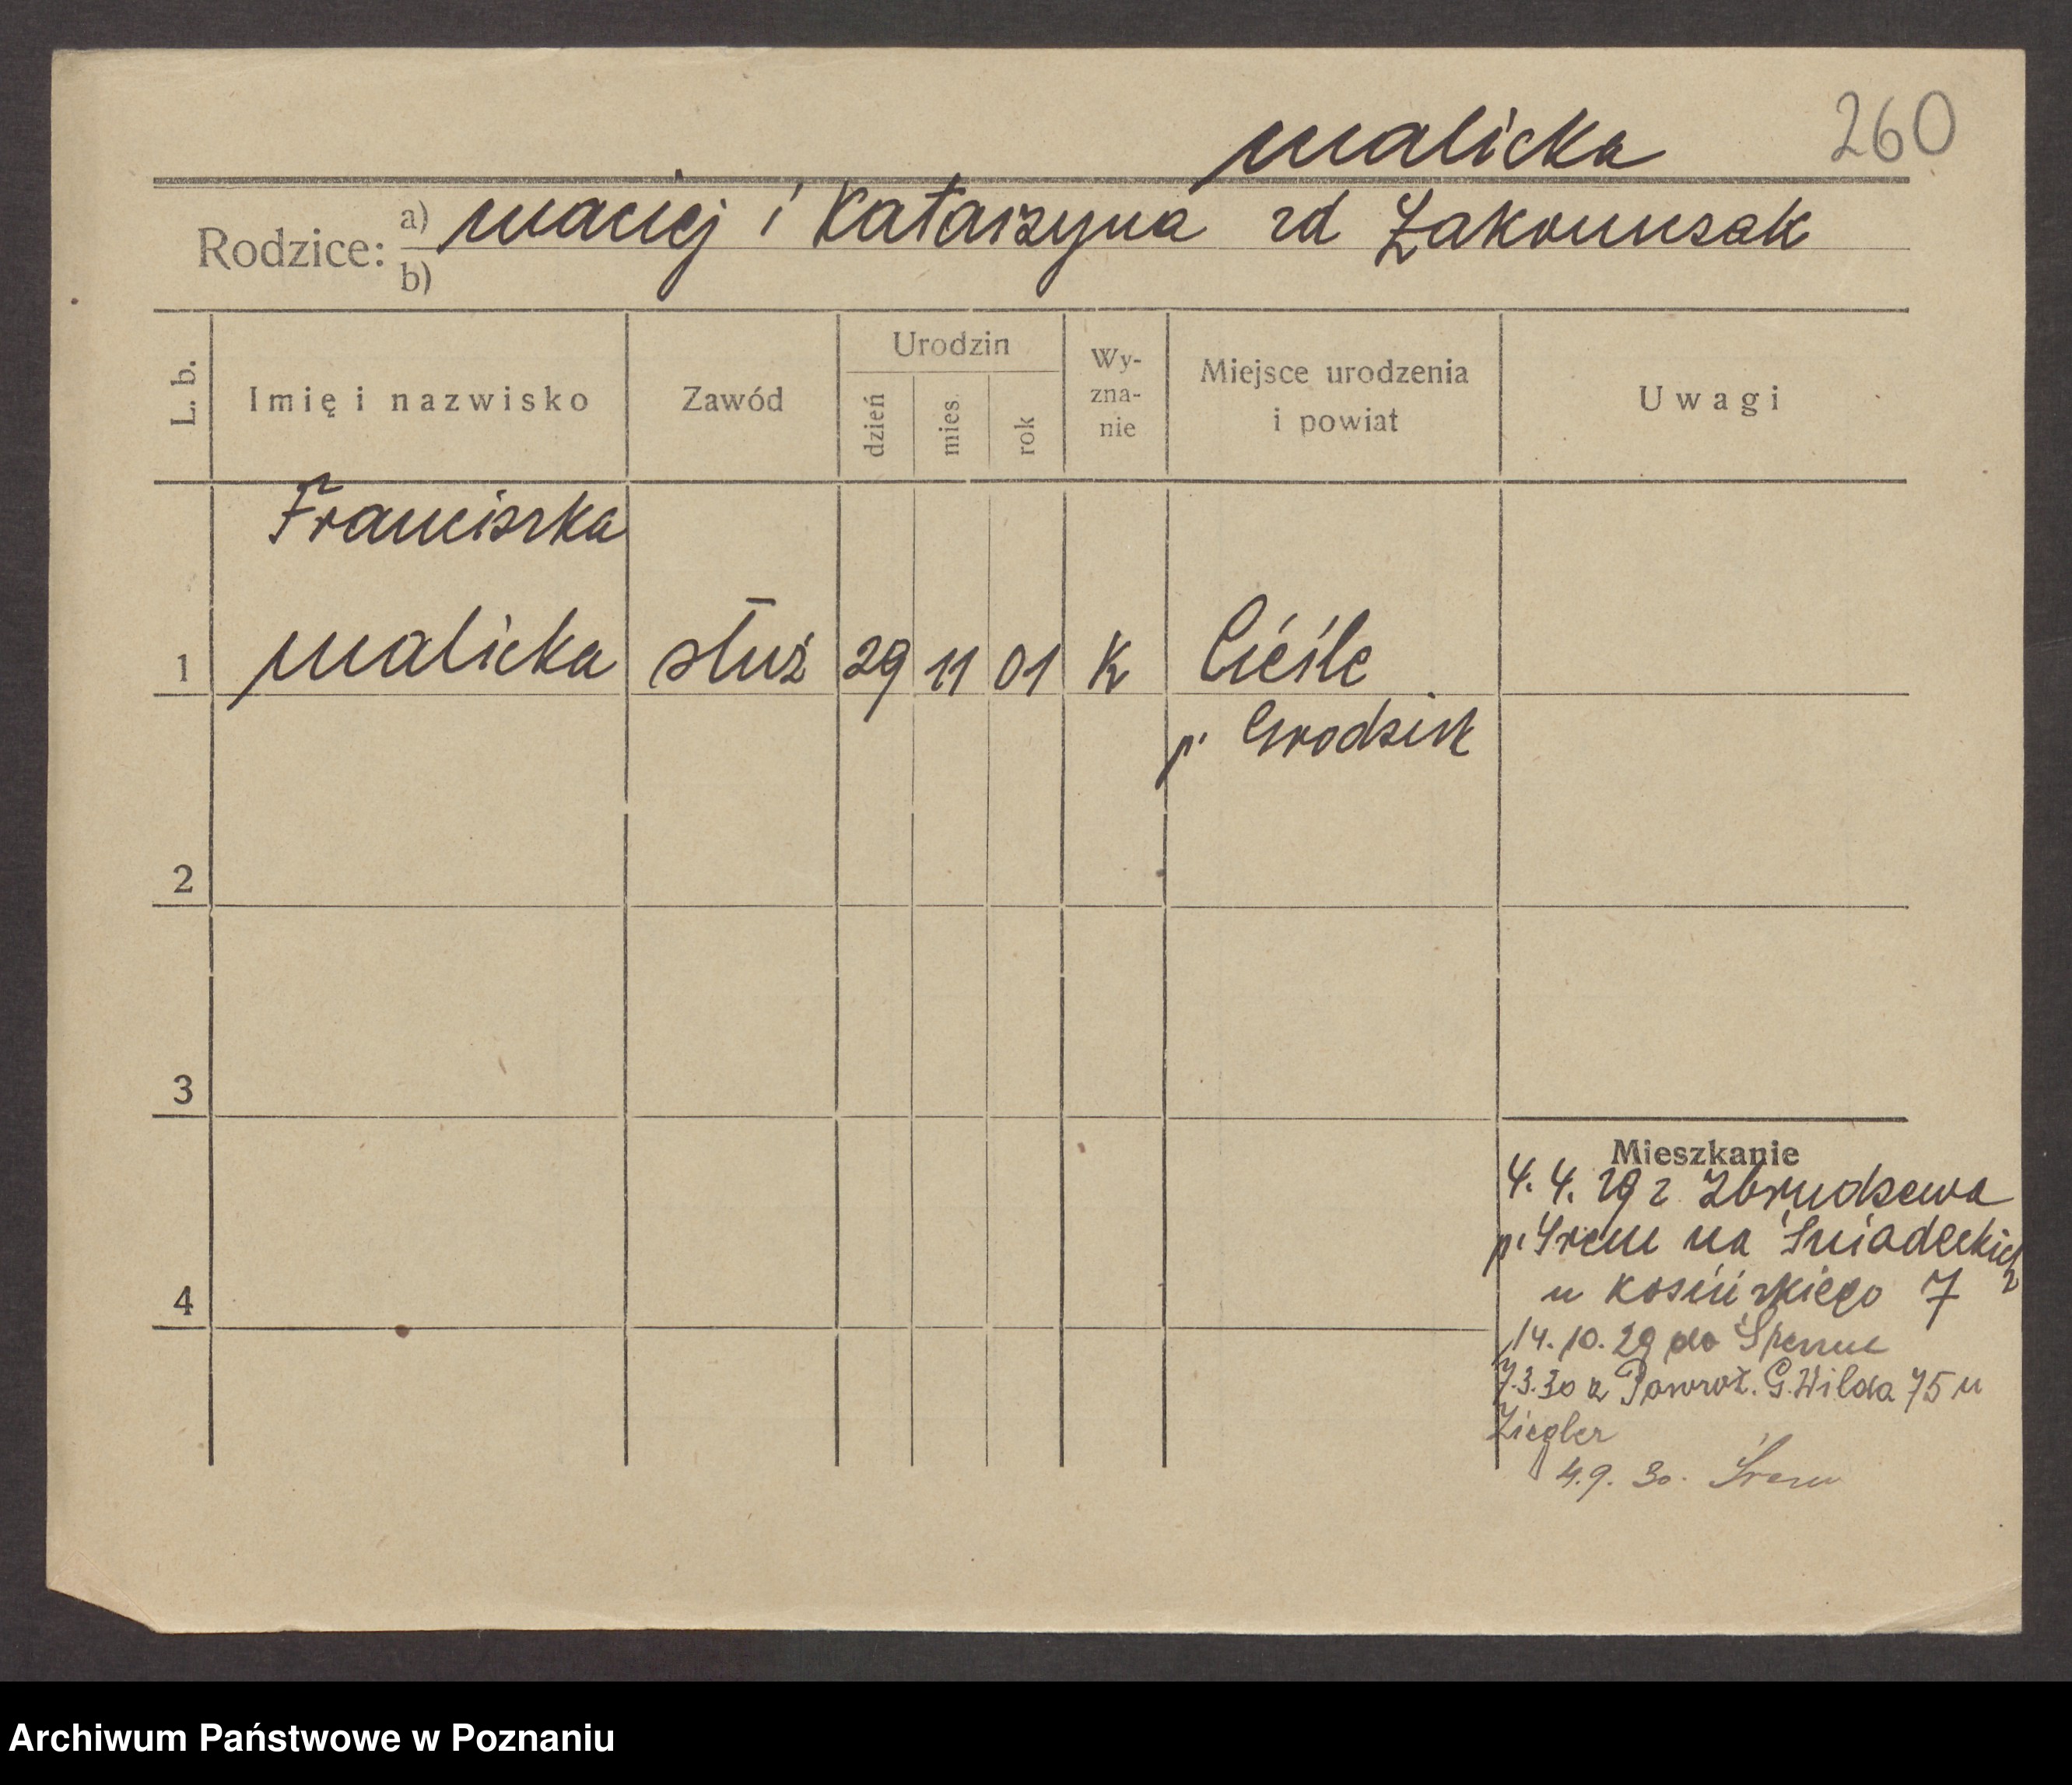 260
Malicka
Rodzice: a) Maciej i Katarzyna zd
b)
L. b.
Imię i nazwisko
Zawód
Urodzin
dzień
mies.
rok
Wy-
zna-
nie
Miejsce urodzenia
i powiat
Uwagi
Franciszka
1 Malicka służ 29 11 01 K Cieśle
p. Grodzisk
2
3
4
Mieszkanie
4. 4. 29 z Zbrudzewa
p. Śrem na Śniadeckich
u Kosińskiego 7
14. 10. 29 do Śremu
7.3.30 z Powrot. G. Wilda 75 u
Ziegler
4.9. 30. Śrem
Archiwum Państwowe w Poznaniu